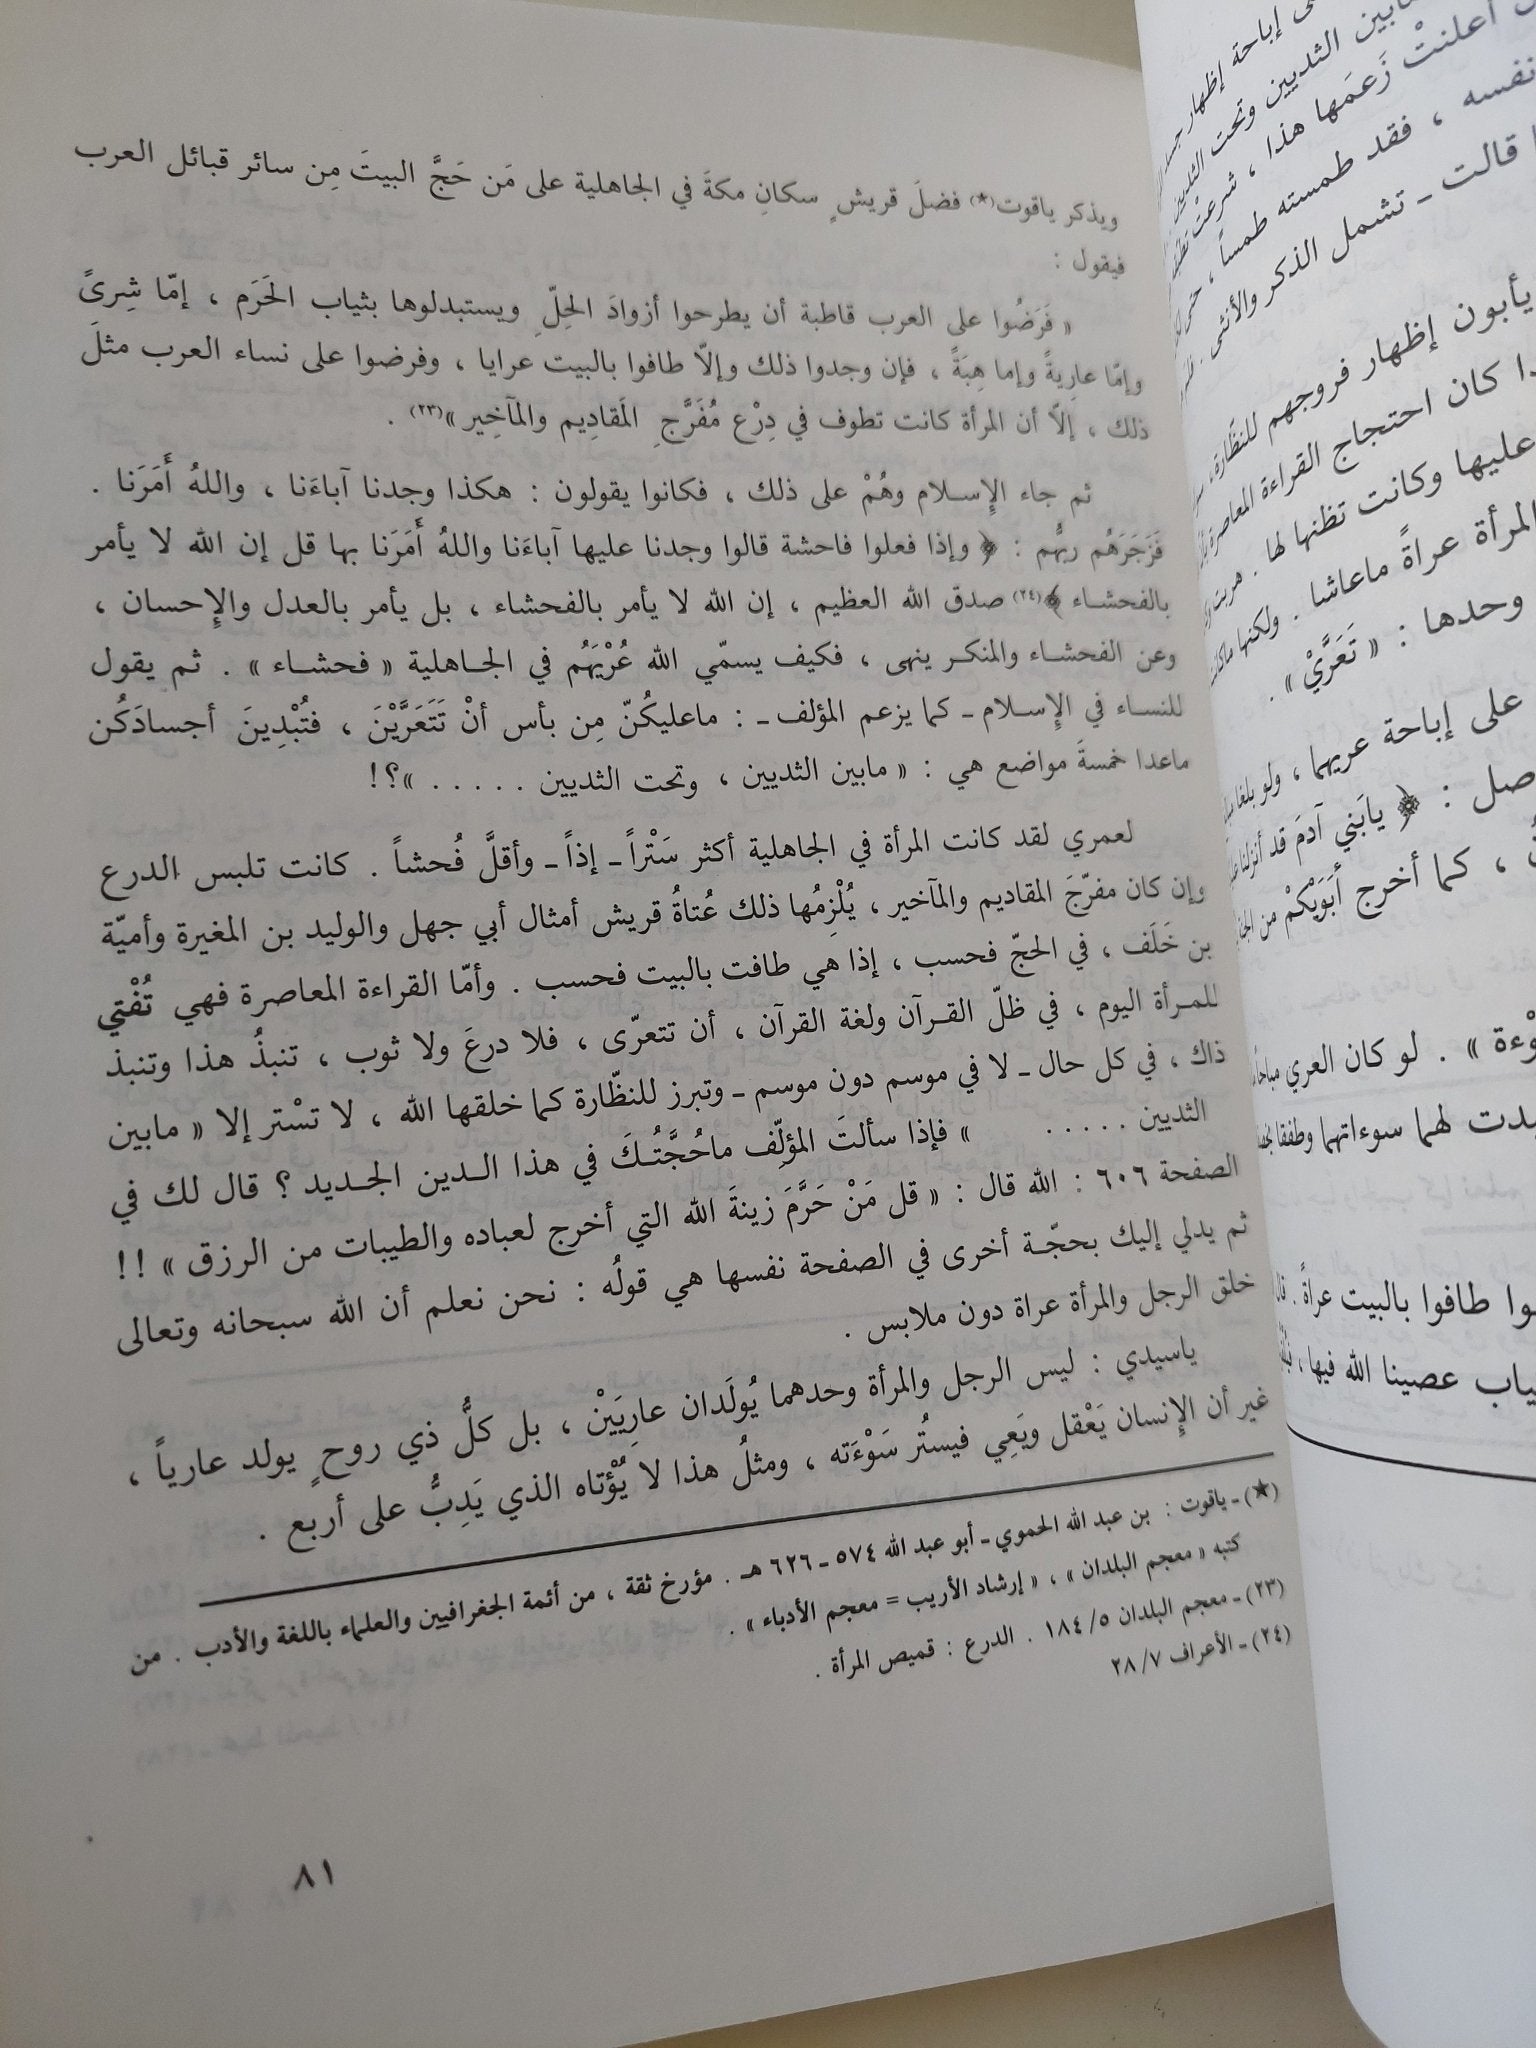 ويذكر ياقوت(★) فضلَ قريشٍ سكانِ مكةَ في الجاهلية على مَن حَجَّ البيتَ مِن سائر قبائل العرب
فيقول :
« فَرَضُوا على العرب قاطبة أن يطرحوا أزوادَ الحِلّ ويستبدلوها بثياب الحَرَم ، إمّا شِرىً
وإمّا عارِيةً وإما هِبَةً ، فإن وجدوا ذلك وإلّا طافوا بالبيت عرايا ، وفرضوا على نساء العرب مثلَ
ذلك ، إلّا أن المرأة كانت تطوف في دِرْع مُفَرَّجِ المَقادِيم والمَآخِير »(٢٣) .
ثم جاء الإسلام وهُمْ على ذلك ، فكانوا يقولون : هكذا وجدنا آباءَنا ، واللهُ أَمَرَنا .
فَزَجَرَهُم ربُّهم : ﴿ وإذا فعلوا فاحشة قالوا وجدنا عليها آباءَنا واللهُ أَمَرَنا بها قل إن الله لا يأمر
بالفحشاء ﴾(٢٤) صدق الله العظيم ، إن الله لا يأمر بالفحشاء ، بل يأمر بالعدل والإحسان ،
وعن الفحشاء والمنكر ينهى ، فكيف يسمّي الله عُرْيَهُم في الجاهلية « فحشاء » . ثم يقول
للنساء في الإسلام ـ كما يزعم المؤلف ـ : ماعليكُنّ مِن بأس أنْ تَتَعَرَّيْنَ ، فتُبْدِينَ أجسادَكُن
ماعدا خمسةَ مواضع هي : « مابين الثديين ، وتحت الثديين . . . . . »؟!
لعمري لقد كانت المرأة في الجاهلية أكثر سَتْراً ـ إذاً ـ وأقلَّ فُحشاً . كانت تلبس الدرع
وإن كان مفرّجَ المقاديم والمآخير ، يُلْزِمُها ذلك عُتاةُ قريش أمثال أبي جهل والوليد بن المغيرة وأميّة
بن خَلَف ، في الحجّ فحسب ، إذا هي طافت بالبيت فحسب . وأمّا القراءة المعاصرة فهي تُفْتي
للمرأة اليوم ، في ظلّ القرآن ولغة القرآن ، أن تتعرّى ، فلا درعَ ولا ثوب ، تنبذُ هذا وتنبذ
ذاك ، في كل حال ـ لا في موسم دون موسم ـ وتبرز للنظّارة كما خلقها الله ، لا تسْتر إلا « مابين
الثديين . . . . . » فإذا سألتَ المؤلّف ماحُجَّتُكَ في هذا الدين الجديد ؟ قال لك في
الصفحة ٦٠٦ : الله قال : « قل مَنْ حَرَّمَ زينةَ الله التي أخرج لعباده والطيبات من الرزق » !!
ثم يدلي إليك بحجّة أخرى في الصفحة نفسها هي قولُه : نحن نعلم أن الله سبحانه وتعالى
خلق الرجل والمرأة عراة دون ملابس .
ياسيدي : ليس الرجل والمرأة وحدهما يُولَدان عارِيَيْن ، بل كلُّ ذي روحٍ يولد عارياً ،
غير أن الإنسان يَعْقل ويَعِي فيستُر سَوْءَته ، ومثلُ هذا لا يُؤْتاه الذي يَدِبُّ على أربع .
(★) ـ ياقوت : بن عبد الله الحموي ـ أبو عبد الله ٥٧٤ ـ ٦٢٦ هـ . مؤرخ ثقة ، من أئمة الجغرافيين والعلماء باللغة والأدب . من
كتبه « معجم البلدان » ، « إرشاد الأريب = معجم الأدباء » .
(٢٣) ـ معجم البلدان ٥/١٨٤ . الدرع : قميص المرأة .
(٢٤) ـ الأعراف ٧/٢٨
٨١
إباحة إظهار
مابين الثديين وتحت الثديين
أعلنتْ زَعمَها هذا ، شرعت
نفسه ، فقد طمسته طمساً ، حتى
قالت ـ تشمل الذكر والأنثى .
يأبون إظهار فروجهم للنظّارة ،
كان احتجاج القراءة المعاصرة
عليها وكانت تظنها لها .
المرأة عراةً ماعاشا . ولكنها
وحدها : « تَعَرَّيْ » .
على إباحة عريهما ، ولو بلغا
: ﴿ يابَني آدمَ قد أنزلنا
، كما أخرج أَبَوَيْكمْ من
» . لو كان العري
لهما سوءاتهما وطفقا
طافوا بالبيت عراةً .
عصينا الله فيها ،